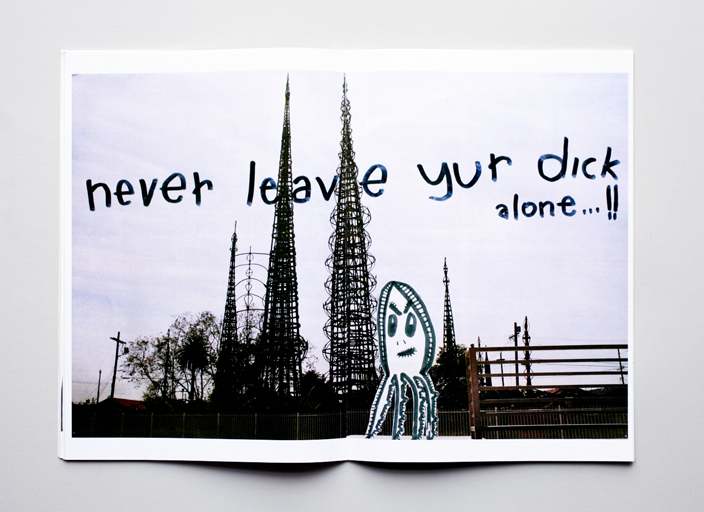 never leave yur dick
alone...!!